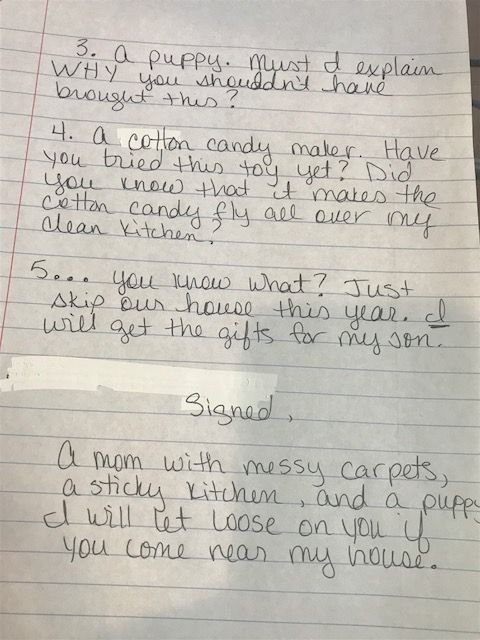 3. A puppy. Must I explain
WHY you shouldn't have
brought this?
4. A cotton candy maker. Have
you tried this toy yet? Did
you know that it makes the
cotton candy fly all over my
clean kitchen?
5... you know what? Just
skip our house this year. I
will get the gifts for my son.
Signed,
A mom with messy carpets,
a sticky kitchen, and a puppy
I will let loose on you if
you come near my house.